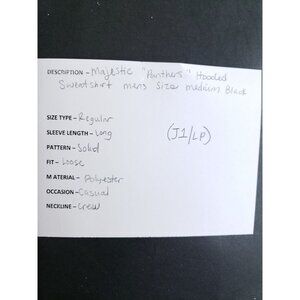 DESCRIPTION – Majestic "Panthers" Hooded
Sweatshirt mens Size medium Black
SIZE TYPE – Regular
SLEEVE LENGTH – Long
(J1/LP)
PATTERN – Solid
FIT – Loose
MATERIAL – Polyester
OCCASION – Casual
NECKLINE – Crew